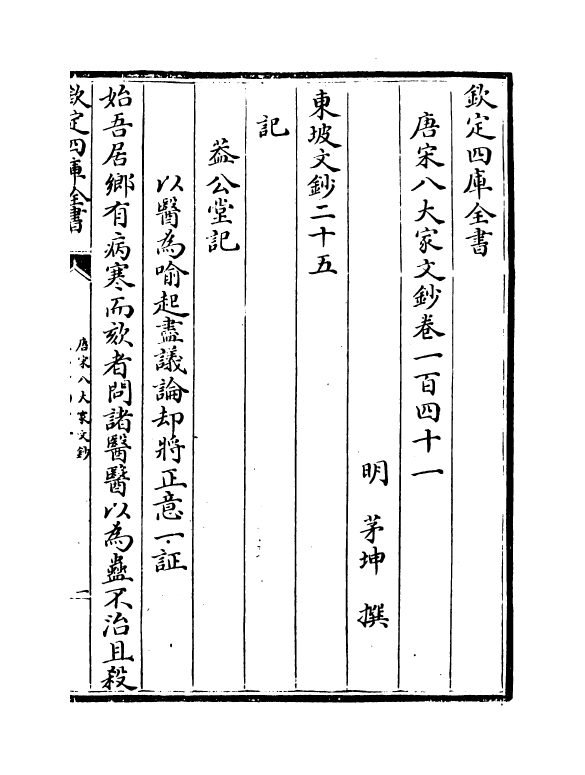 欽定四庫全書
唐宋八大家文鈔卷一百四十一
明 茅坤 撰
東坡文鈔二十五
記
葢公堂記
以醫為喻起盡議論却將正意一証
始吾居鄉有病寒而欬者問諸醫醫以為蠱不治且殺
欽定四庫全書
唐宋八大家文鈔
一